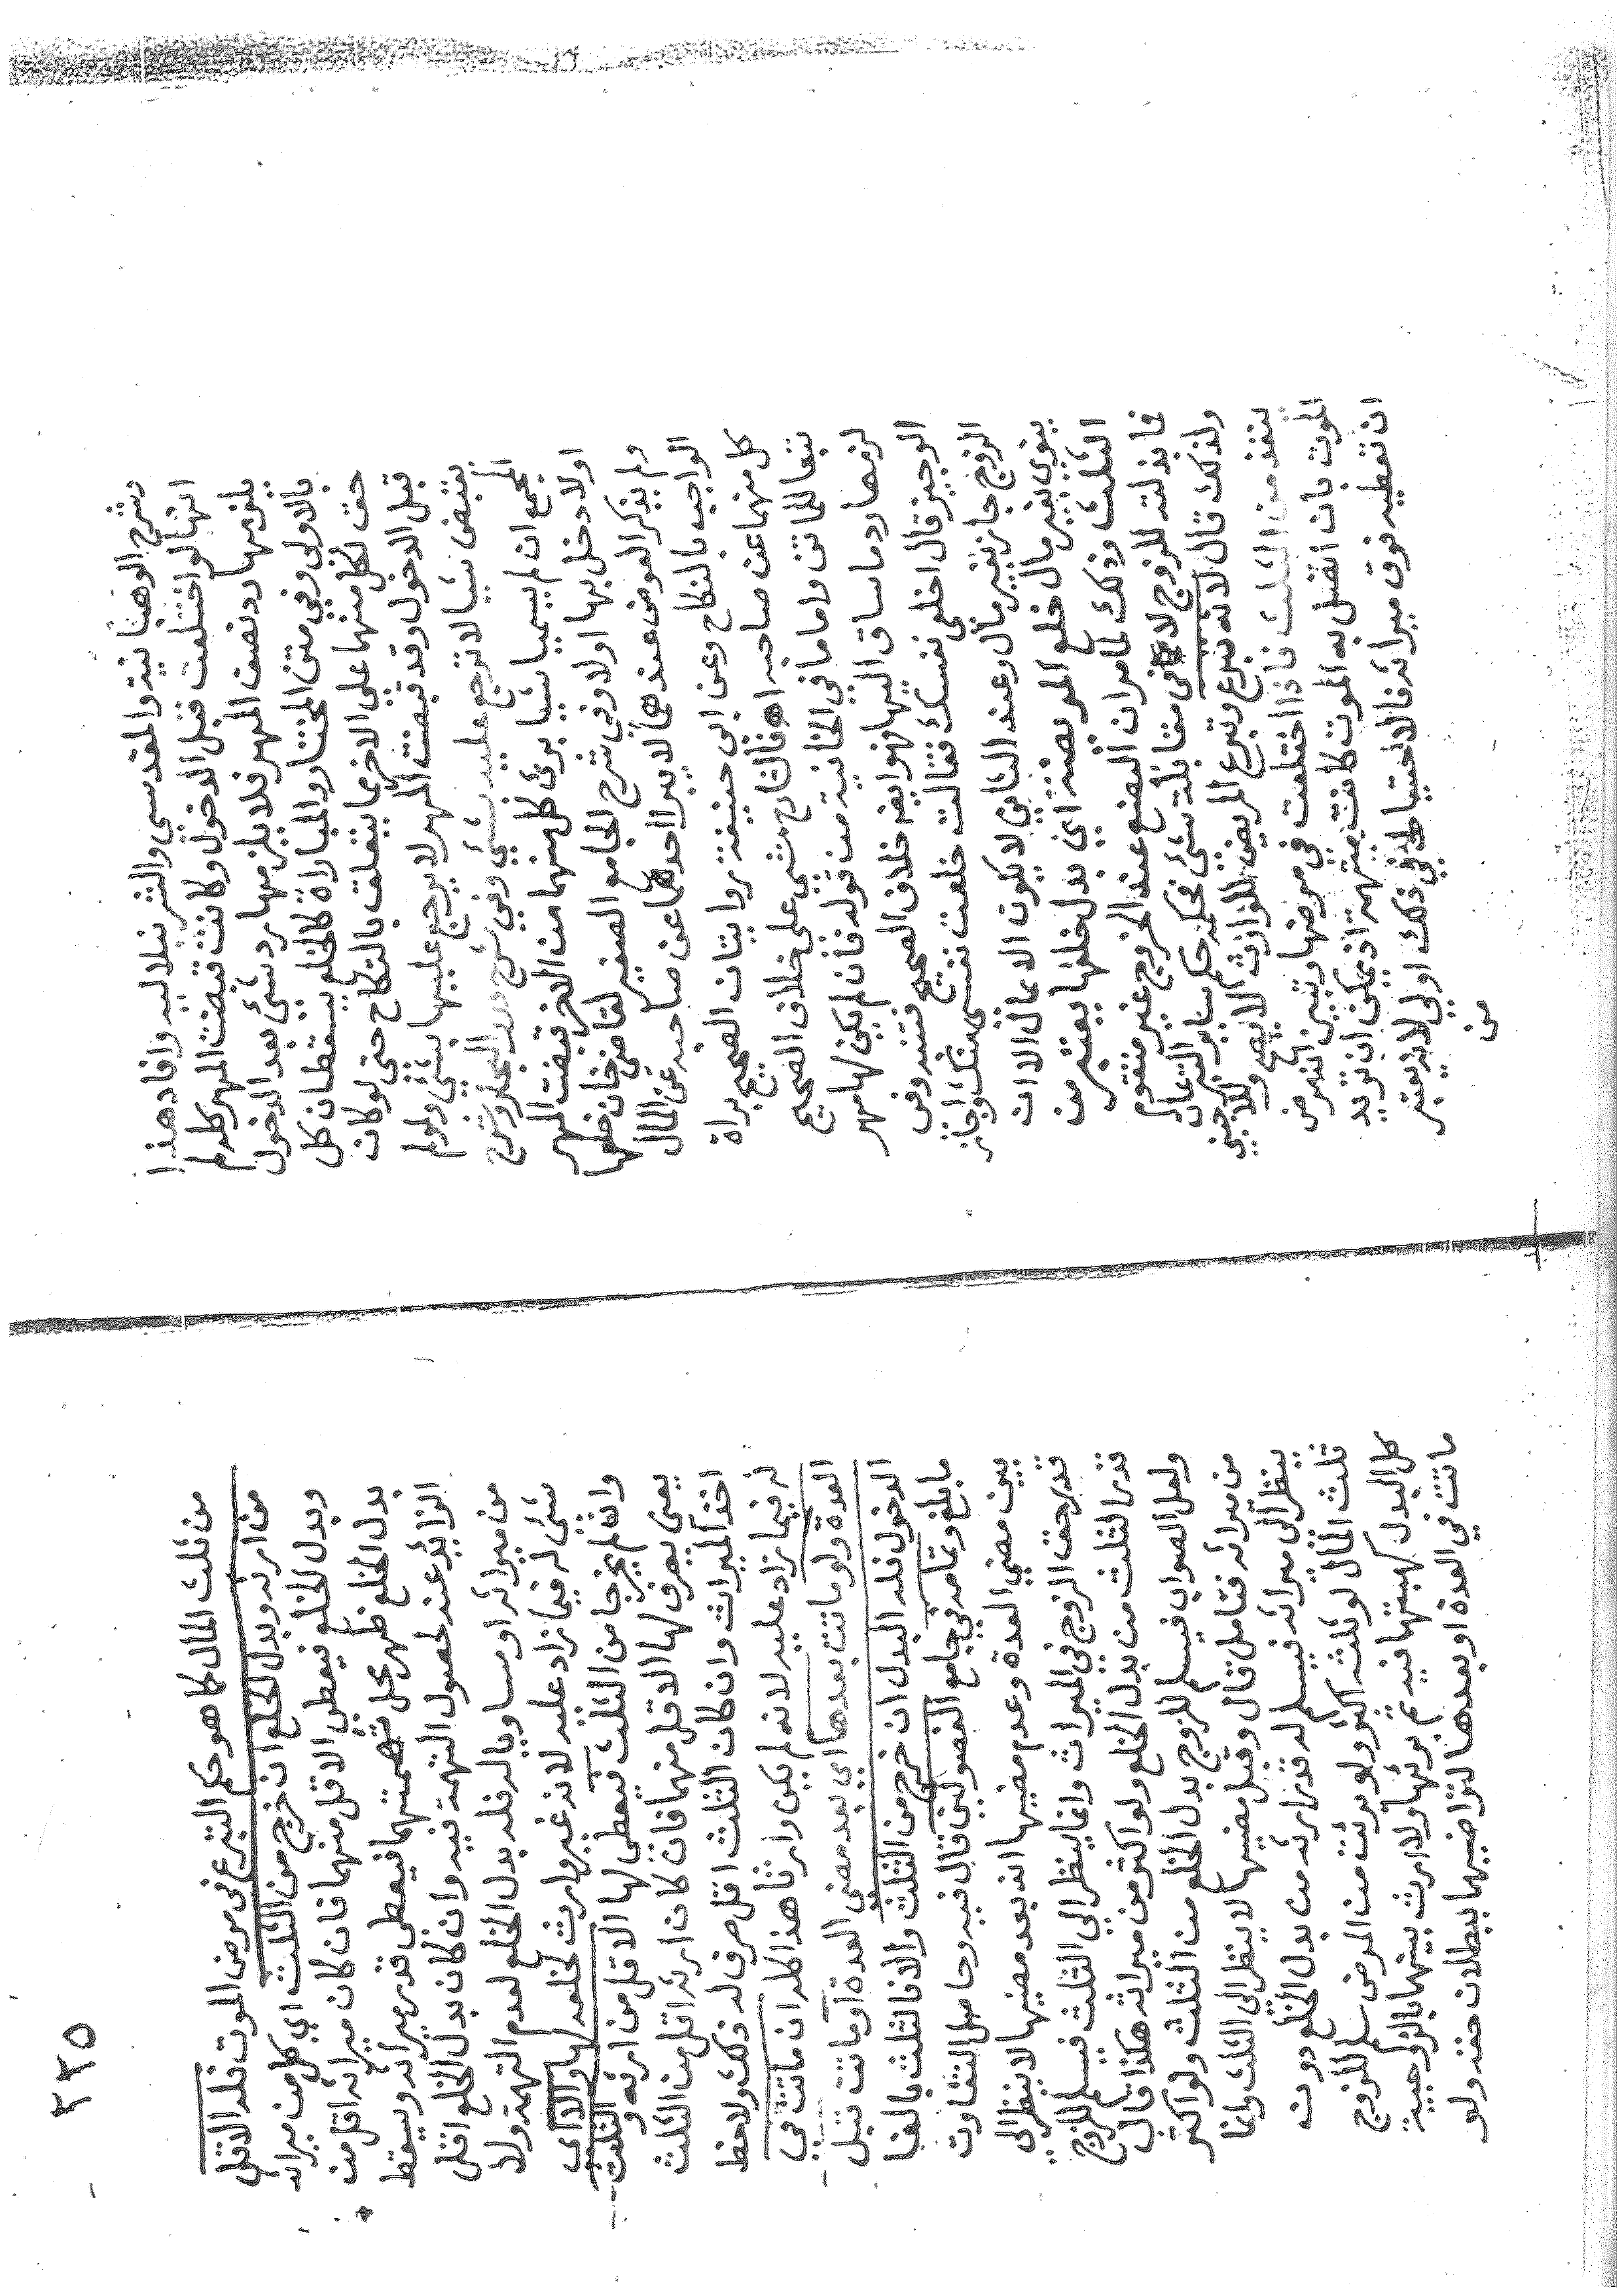 وشرح الوهبانية والمقدسي والشرنبلاليه وافاد هذا
انها لو اختلعت قبل الدخول وكانت قبضت المهر كله لم
يلزمها رد نصف المهر فلا يلزمها رد شئ بعد الدخول
بالاولى وفي متن المختار والمباراة كالخلع يسقطان كل
حق لكل منهما على الاخر مما يتعلق بالنكاح حتى لو كان
قبل الدخول وقد قبضت المهر لا يرجع عليها بشئ ولو لم
تقبض شيا لا ترجع عليه بشئ وفي شرح البحر وشرح
المجمع ان لم يسميا شيا برئ كل منهما من الاخر قبضت المهر
اولا دخل بها اولا وفي شرح الجامع الصغير لقاضى خان خلعها
ولم يذكر العوض عندهما لا يبرا احدهما عن صاحبه عن المال
الواجب بالنكاح وعن ابى حنيفة روايتان الصحيح براة
كل منهما عن صاحبه اه فالشارح مشى على خلاف الصحيح
تبعا للماتن واما ما في الخانية من قوله فان لم يكن لها مهر
لزمها رد ما ساق اليها فهو ايضا خلاف الصحيح فتنبه وفى
الوجيز قال اخلعى نفسك فقالت خلعت نفسى منك واجاز
الزوج جاز بغير مال وعند الثاني لا يكون الا بمال الا ان
ينوى بغير مال خلع المريضة اي بدل خلعها يعتبر من
الثلث وذلك لما مر ان البضع عند الخروج غير متقوم
فما بذلته للزوج لا في مقابلته شئ فحكمه حكم سائر التبرعات
ولذلك قال لانه تبرع وتبرع المريض للوارث لا يصح وللاجنبى
ينفذ من الثلث فاذا اختلعت في مرضها وتبين انه مرض
الموت بان اتصل به الموت كانت متهمة اذ يمكن ان تريد
ان تعطيه فوق ميراثه فالاحتياط في ذلك اولى لا نه يعتبر
من
٢٣٥
من ثلث المال كما هو حكم التبرع فى مرض الموت فله الاقل
من ارثه وبدل الخلع ان خرج من الثلث اي كل من ميراثه
وبدل الخلع فيعطى الاقل منهما فان كان ميراثه اقل من
بدل الخلع ظهر محل تهمتهما فيعطى قدر ميراثه ويسقط
الزايد عنه لحصول التهمة فيه وان كان بدل الخلع اقل
من ميراثه او مساويا له فله بدل الخلع لعدم التهمة ولا
شئ له فيما زاد عليه لانه غير وارث لخلعه لها والا اى
وان لم يخرجا من الثلث فيعطى لها الاقل من ارثه والثلث
يعنى يصرف لها الاقل منهما فان كان ارثه اقل من الثلث
اخذ الميراث وان كان الثلث اقل صرف له ذلك ولا حظ
له فيما زاد عليه لانه لم يكن وارثا هذا كله ان ماتت في
العدة ولو ماتت بعدها اي بعد مضى العدة او ماتت قبل
الدخول فله البدل ان خرج من الثلث والا فالثلث بالغا
ما بلغ وتمامه في جامع الفصولين قال فيه وحاصل التفاوت
بين مضى العدة وعدم مضيها انه بعد مضيها لا ينظر الى
قدر حق الزوج فى الميراث وانما ينظر الى الثلث فيسلم للزوج
قدر الثلث من بدل الخلع ولو اكثر من ميراثه هكذا قال
ولعل الصواب فيسلم للزوج بدل الخلع من الثلث ولو اكثر
من ميراثه فتامل قال وقبل مضيها لا ينظر الى الثلث وانما
ينظر الى ميراثه فيسلم له قدر ارثه من بدل الخلع دون
ثلث المال لو ثلثه اكثر ولو برئت من المرض سلم للزوج
كل البدل كهبتها فيه ثم برئها ولا ارث بينهما بالزوجية
ماتت في العدة او بعدها لتراضيهما ببطلان حقه ولو